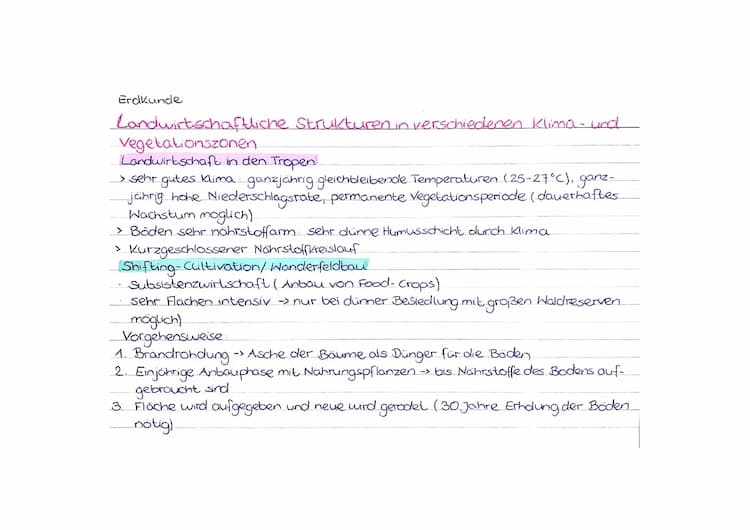 Erdkunde
Landwirtschaftliche Strukturen in verschiedenen Klima- und
Vegetationszonen
Landwirtschaft in den Tropen
> sehr gutes Klima: ganzjährig gleichbleibende Temperaturen (25-27°C), ganz-
jährig hohe Niederschlagsrate, permanente Vegetationsperiode (dauerhaftes
Wachstum möglich)
> Böden sehr nährstoffarm: sehr dünne Humusschicht durch Klima
> Kurzgeschlossener Nährstoffkreislauf
Shifting-Cultivation/Wanderfeldbau
· Subsistenzwirtschaft (Anbau von Food-Crops)
· sehr Flächen intensiv → nur bei dünner Besiedlung mit großen Waldreserven
möglich)
Vorgehensweise:
1. Brandrohdung → Asche der Bäume als Dünger für die Böden
2. Einjährige Anbauphase mit Nahrungspflanzen → bis Nährstoffe des Bodens auf-
gebraucht sind
3. Fläche wird aufgegeben und neue wird gerodet (30 Jahre Erholung der Böden
nötig)